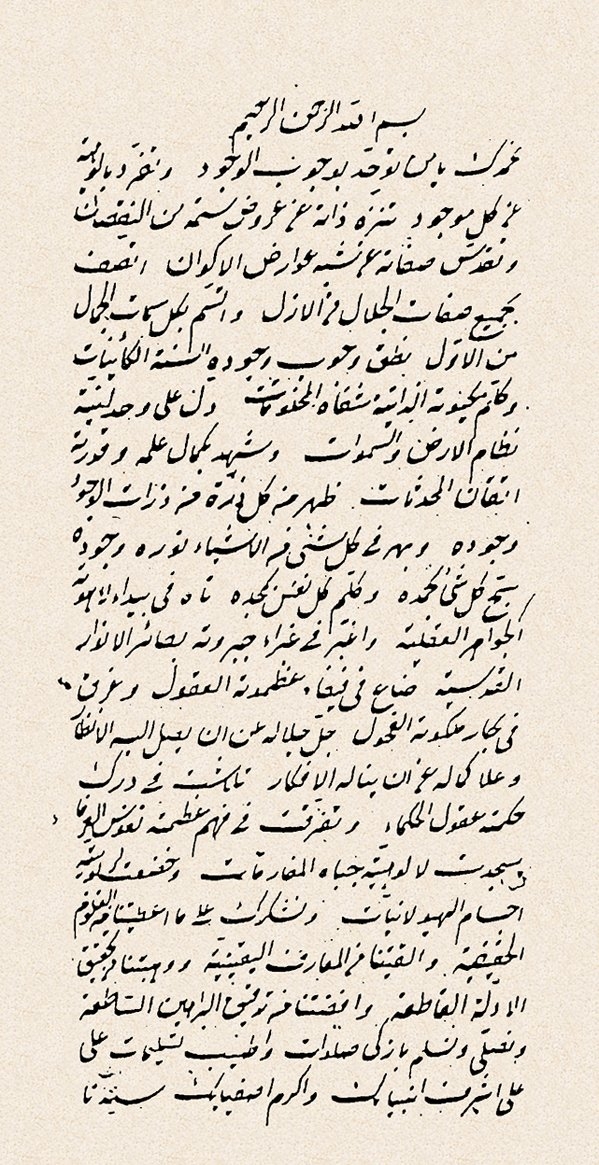 بسم الله الرحمن الرحيم
نحمدك يا من توحّد بوجوب الوجود وتفرّد بالوهيته
عن كل موجود تنزه ذاته عن عروض سمة من النقصان
وتقدس صفاته عن شبه عوارض الاكوان اتصف
بجميع صفات الجلال في الازل واتسم بكل سمات الجمال
من الاوّل نطق وجوب وجوده السنة الكائنات
وكلّم بكينونته الذاتية شفاه المخلوقات دل على وحدانيته
نظام الارض والسموات وشهد بكمال علمه وقدرته
اتقان المحدثات ظهر من كل ذرّة من ذرات الوجود
وجوده وبهر في كل شئ من الاشياء نوره وجوده
سبّح كل شئ بحمده وكلّم كل نفس بمجده تاه في بيداء لاهوته
الجواهر العقلية واغبر في غبراء جبروته بصائر الانوار
القدسية ضاع في فيفاء عظموته العقول وغرق
في بحار ملكوته الفحول جلّ جلاله عن ان يصل اليه الانظار
وعلا كماله عن ان يناله الافكار تلاشت في درك
حكمته عقول الحكماء وتفرّقت في فهم عظمته نفوس العرفا
سجدت لالوهيّته جباه المفارقات وخضعت لربوبيته
اجسام الهيولانيّات ونشكرك على ما اعطيتنا من العلوم
الحقيقية والقيتنا من المعارف اليقينيّة ووهبتنا من تحقيق
الادلّة القاطعة وافضتنا من توفيق البراهين الساطعة
ونصلّي ونسلم بازكى صلوات واطيب تسليمات على
على اشرف انبيائك واكرم اصفيائك سيدنا